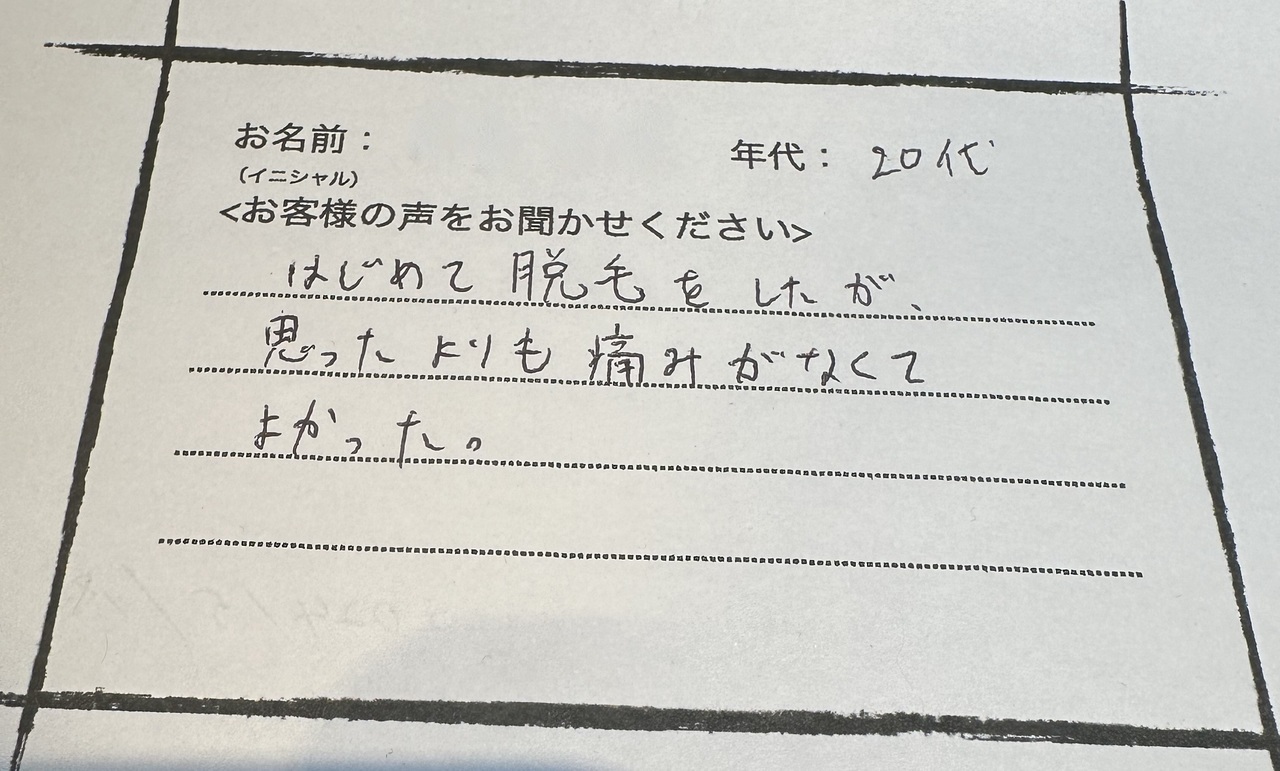 お名前：
年代：20代
（イニシャル）
<お客様の声をお聞かせください>
はじめて脱毛をしたが、
思ったよりも痛みがなくて
よかった。